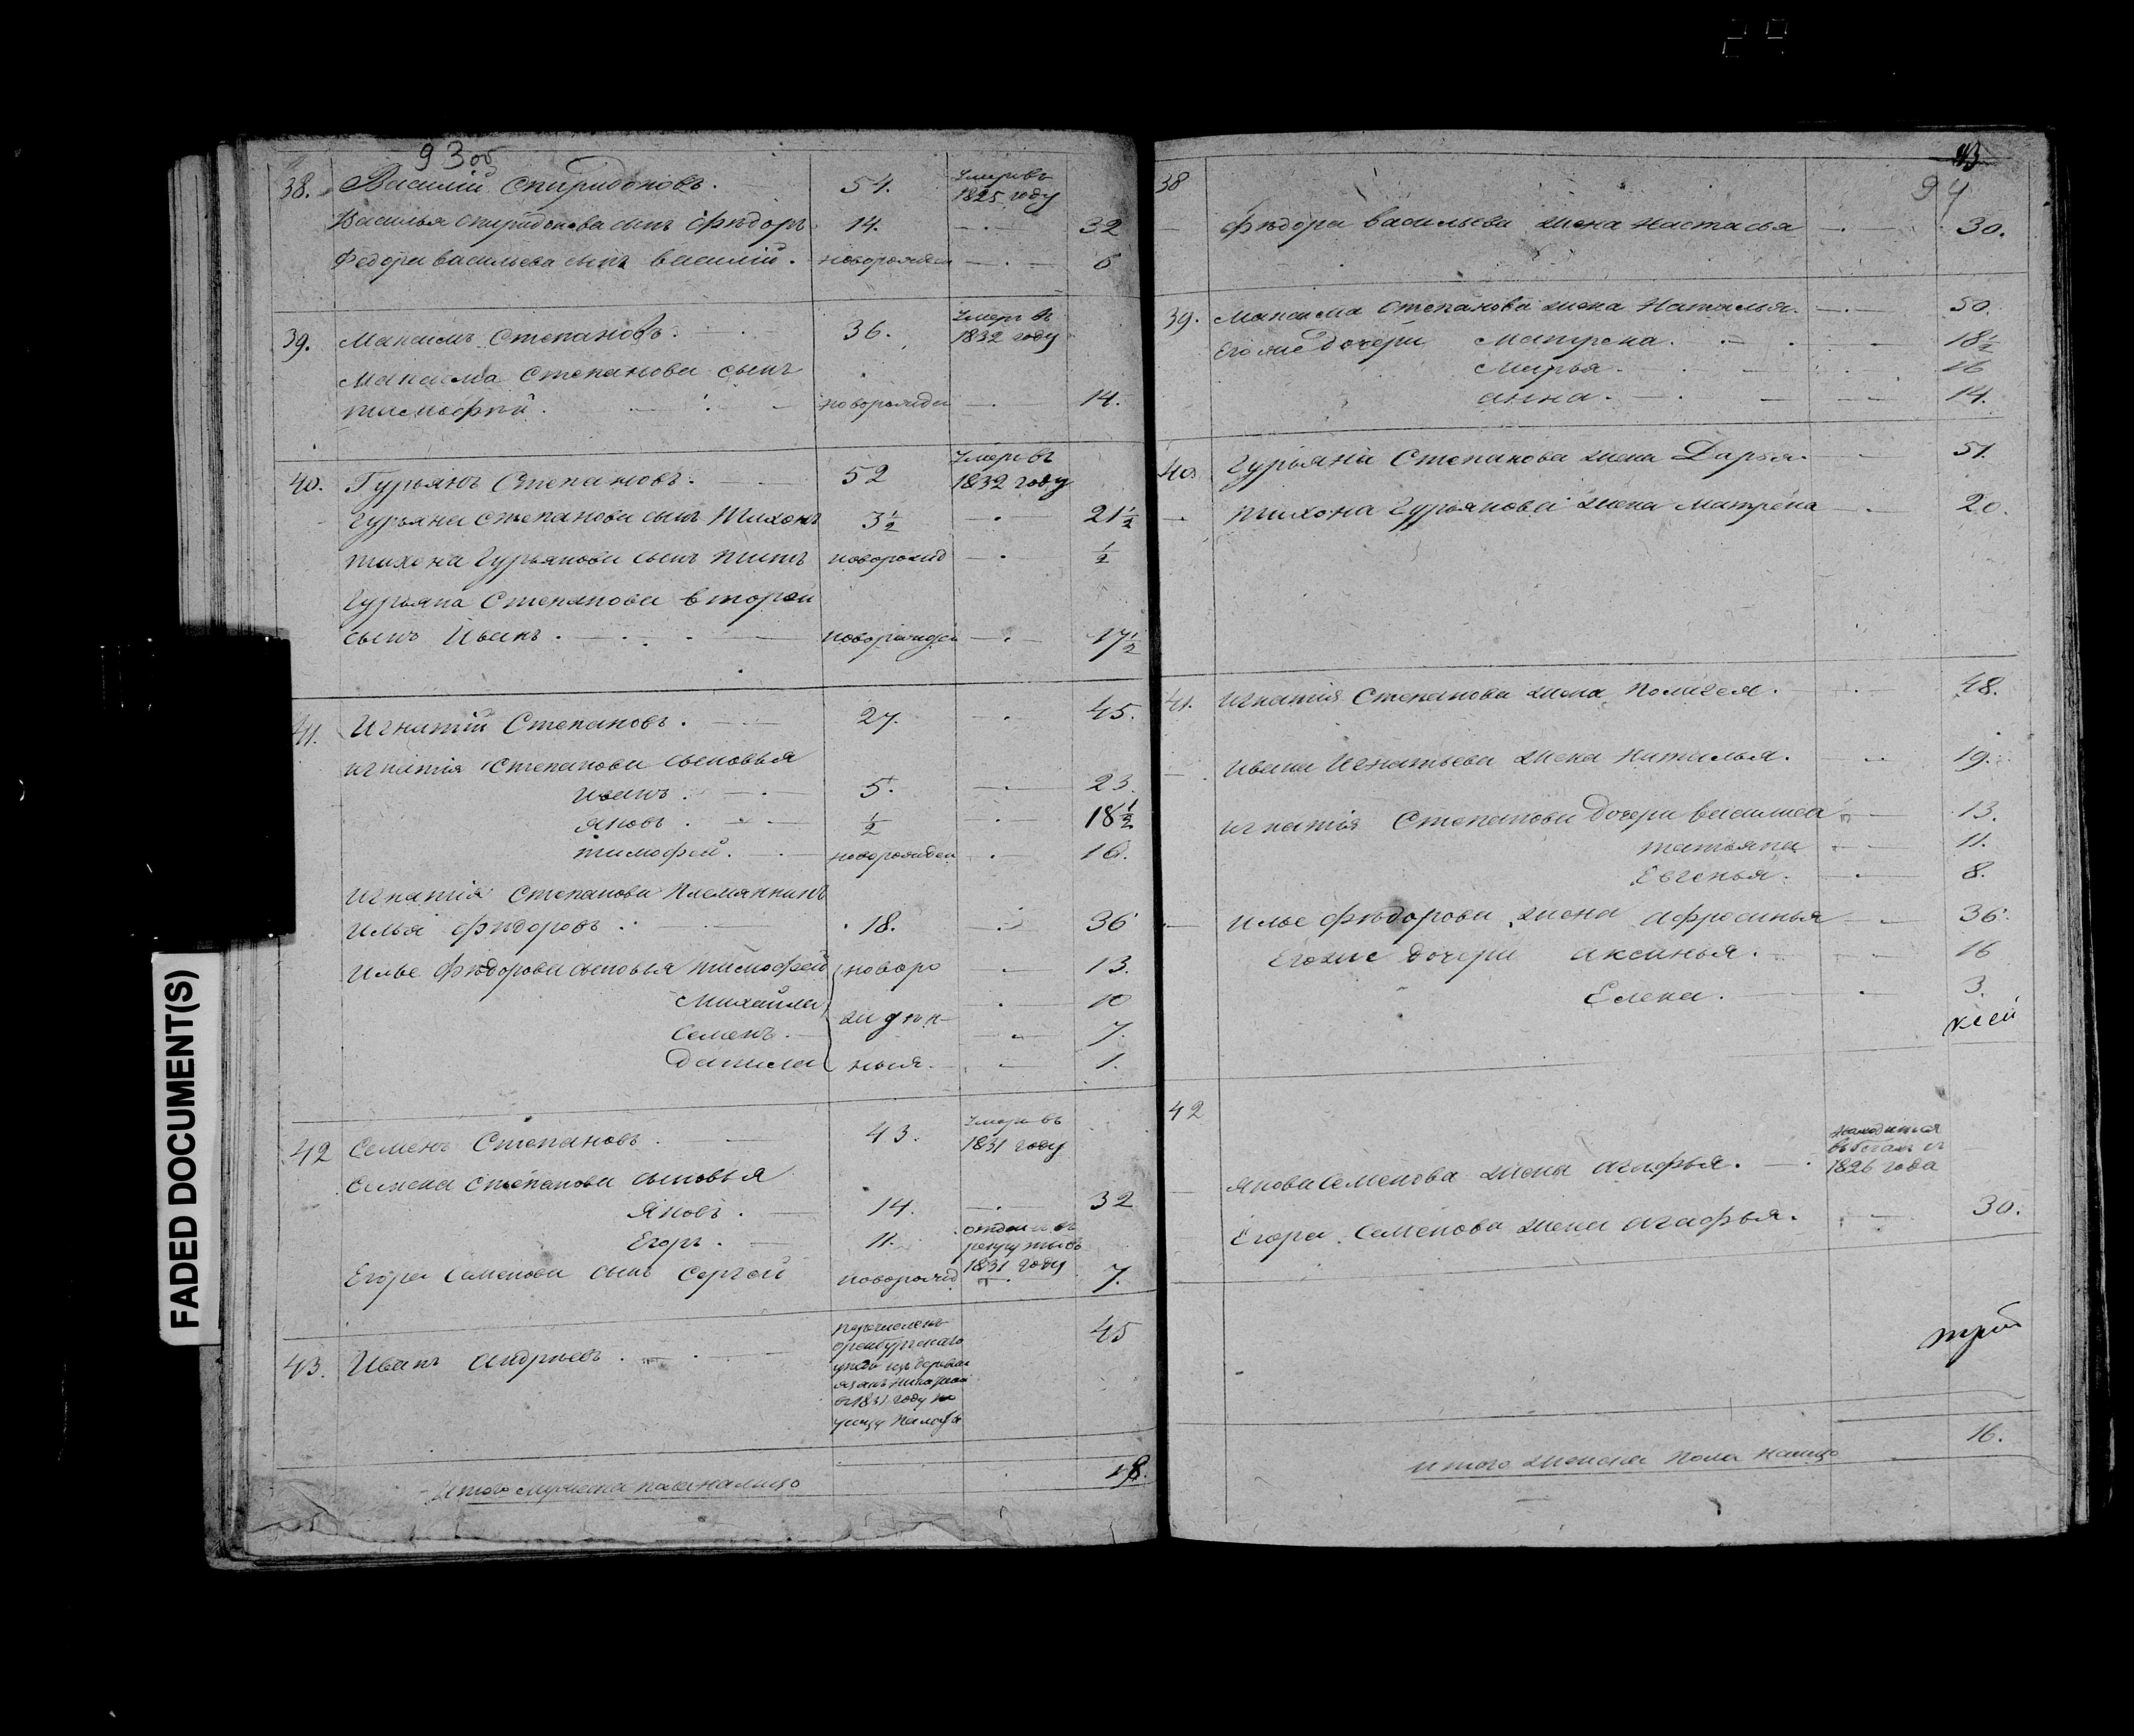 93об
38. Василій Спиридоновъ. 54. Умеръ въ 1825 году
Василья Спиридонова сынъ Фѣдоръ 14. 32
Федора Васильева сынъ Василій. новорожден 6
39. Максимъ Степановъ. 36. Умеръ въ 1832 году
Максима Степанова сынъ
Тимофѣй. новорожден 14.
40. Гурьянъ Степановъ. 52 Умеръ въ 1832 году
Гурьяна Степанова сынъ Тихонъ 3½ 21½
Тихона Гурьянова сынъ Титъ новорожд ½
Гурьяна Степанова второй
сынъ Иванъ. новорожден 17½
41. Игнатій Степановъ. 27. 45.
Игнатія Степанова сыновья
Иванъ. 5. 23.
Яковъ. ½ 18½
Тимофей. новорожден 16.
Игнатія Степанова племянникъ
Илья Фѣдоровъ. 18. 36
Илье Фѣдорова сыновья Тимофей новоро 13.
Михайла 10
жден
Семенъ. 7.
Данила ныя. 1.
42 Семенъ Степановъ. 43. Умеръ въ 1831 году
Семена Степанова сыновья
Яковъ. 14. 32
Егоръ. 11. отданъ въ рекруты въ 1831 году
Егора Семенова сынъ Сергей новорожд 7.
43. Иванъ Андрѣевъ. перечисленъ
оренбургскаго 45
1831 году
Итого мужеска пола налицо 18.
43
94
38
Фѣдора Васильева жена Настасья 30.
39. Максима Степанова жена Наталья. 50.
Егоже дочери Матрена. 18½
Марья. 16
Анна. 14.
40. Гурьяна Степанова жена Дарья. 51.
Тихона Гурьянова жена Матрена 20.
41. Игнатія Степанова жена Пелагея. 48.
Ивана Игнатьева жена Наталья. 19.
Игнатія Степанова дочери Василиса 13.
Татьяна 11.
Евгенья. 8.
Илье Фѣдорова жена Афросинья 36.
Егоже дочери Аксинья. 16
Елена. 3.
42
Находится
въ бегахъ съ
Якова Семенова жена Агафья. 1826 года
Егора Семенова жена Агафья. 30.
Итого женска пола налицо 16.
FADED DOCUMENT(S)